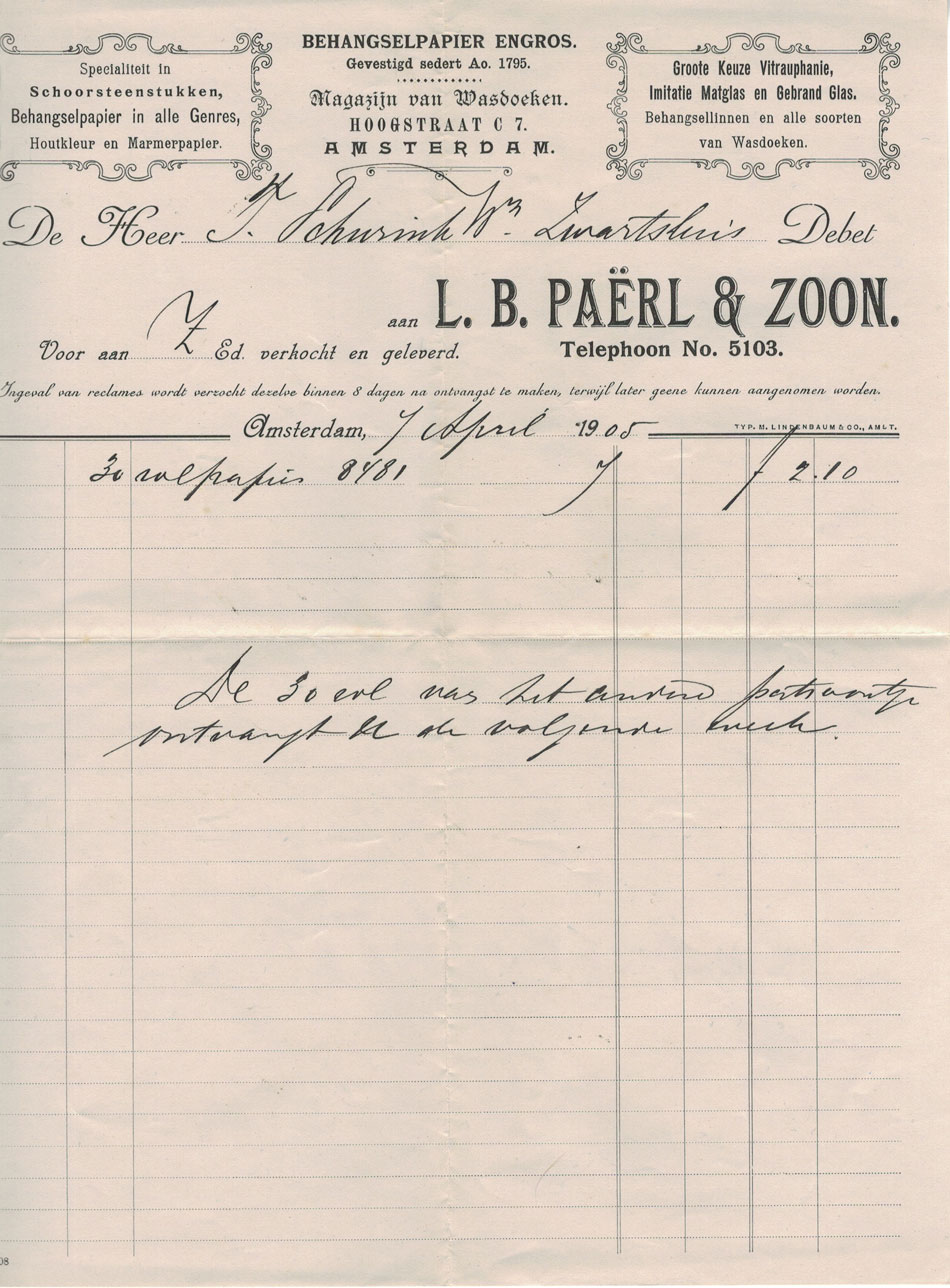 Specialiteit in
Schoorsteenstukken,
Behangselpapier in alle Genres,
Houtkleur en Marmerpapier.
BEHANGSELPAPIER ENGROS.
Gevestigd sedert Ao. 1795.
Magazijn van Wasdoeken.
HOOGSTRAAT C 7.
AMSTERDAM.
Groote Keuze Vitrauphanie,
Imitatie Matglas en Gebrand Glas.
Behangsellinnen en alle soorten
van Wasdoeken.
De Heer Schurink Zwartsluis Debet
aan L. B. PAËRL & ZOON.
Voor aan Z Ed. verkocht en geleverd.
Telephoon No. 5103.
Ingeval van reclames wordt verzocht dezelve binnen 8 dagen na ontvangst te maken, terwijl later geene kunnen aangenomen worden.
Amsterdam, 7 April 1905
TYP. M. LINDENBAUM & CO., AMST.
30 rol papier 8481 7 f 2.10
De 30 rol van het andere patroontje
ontvangt U de volgende week.
08